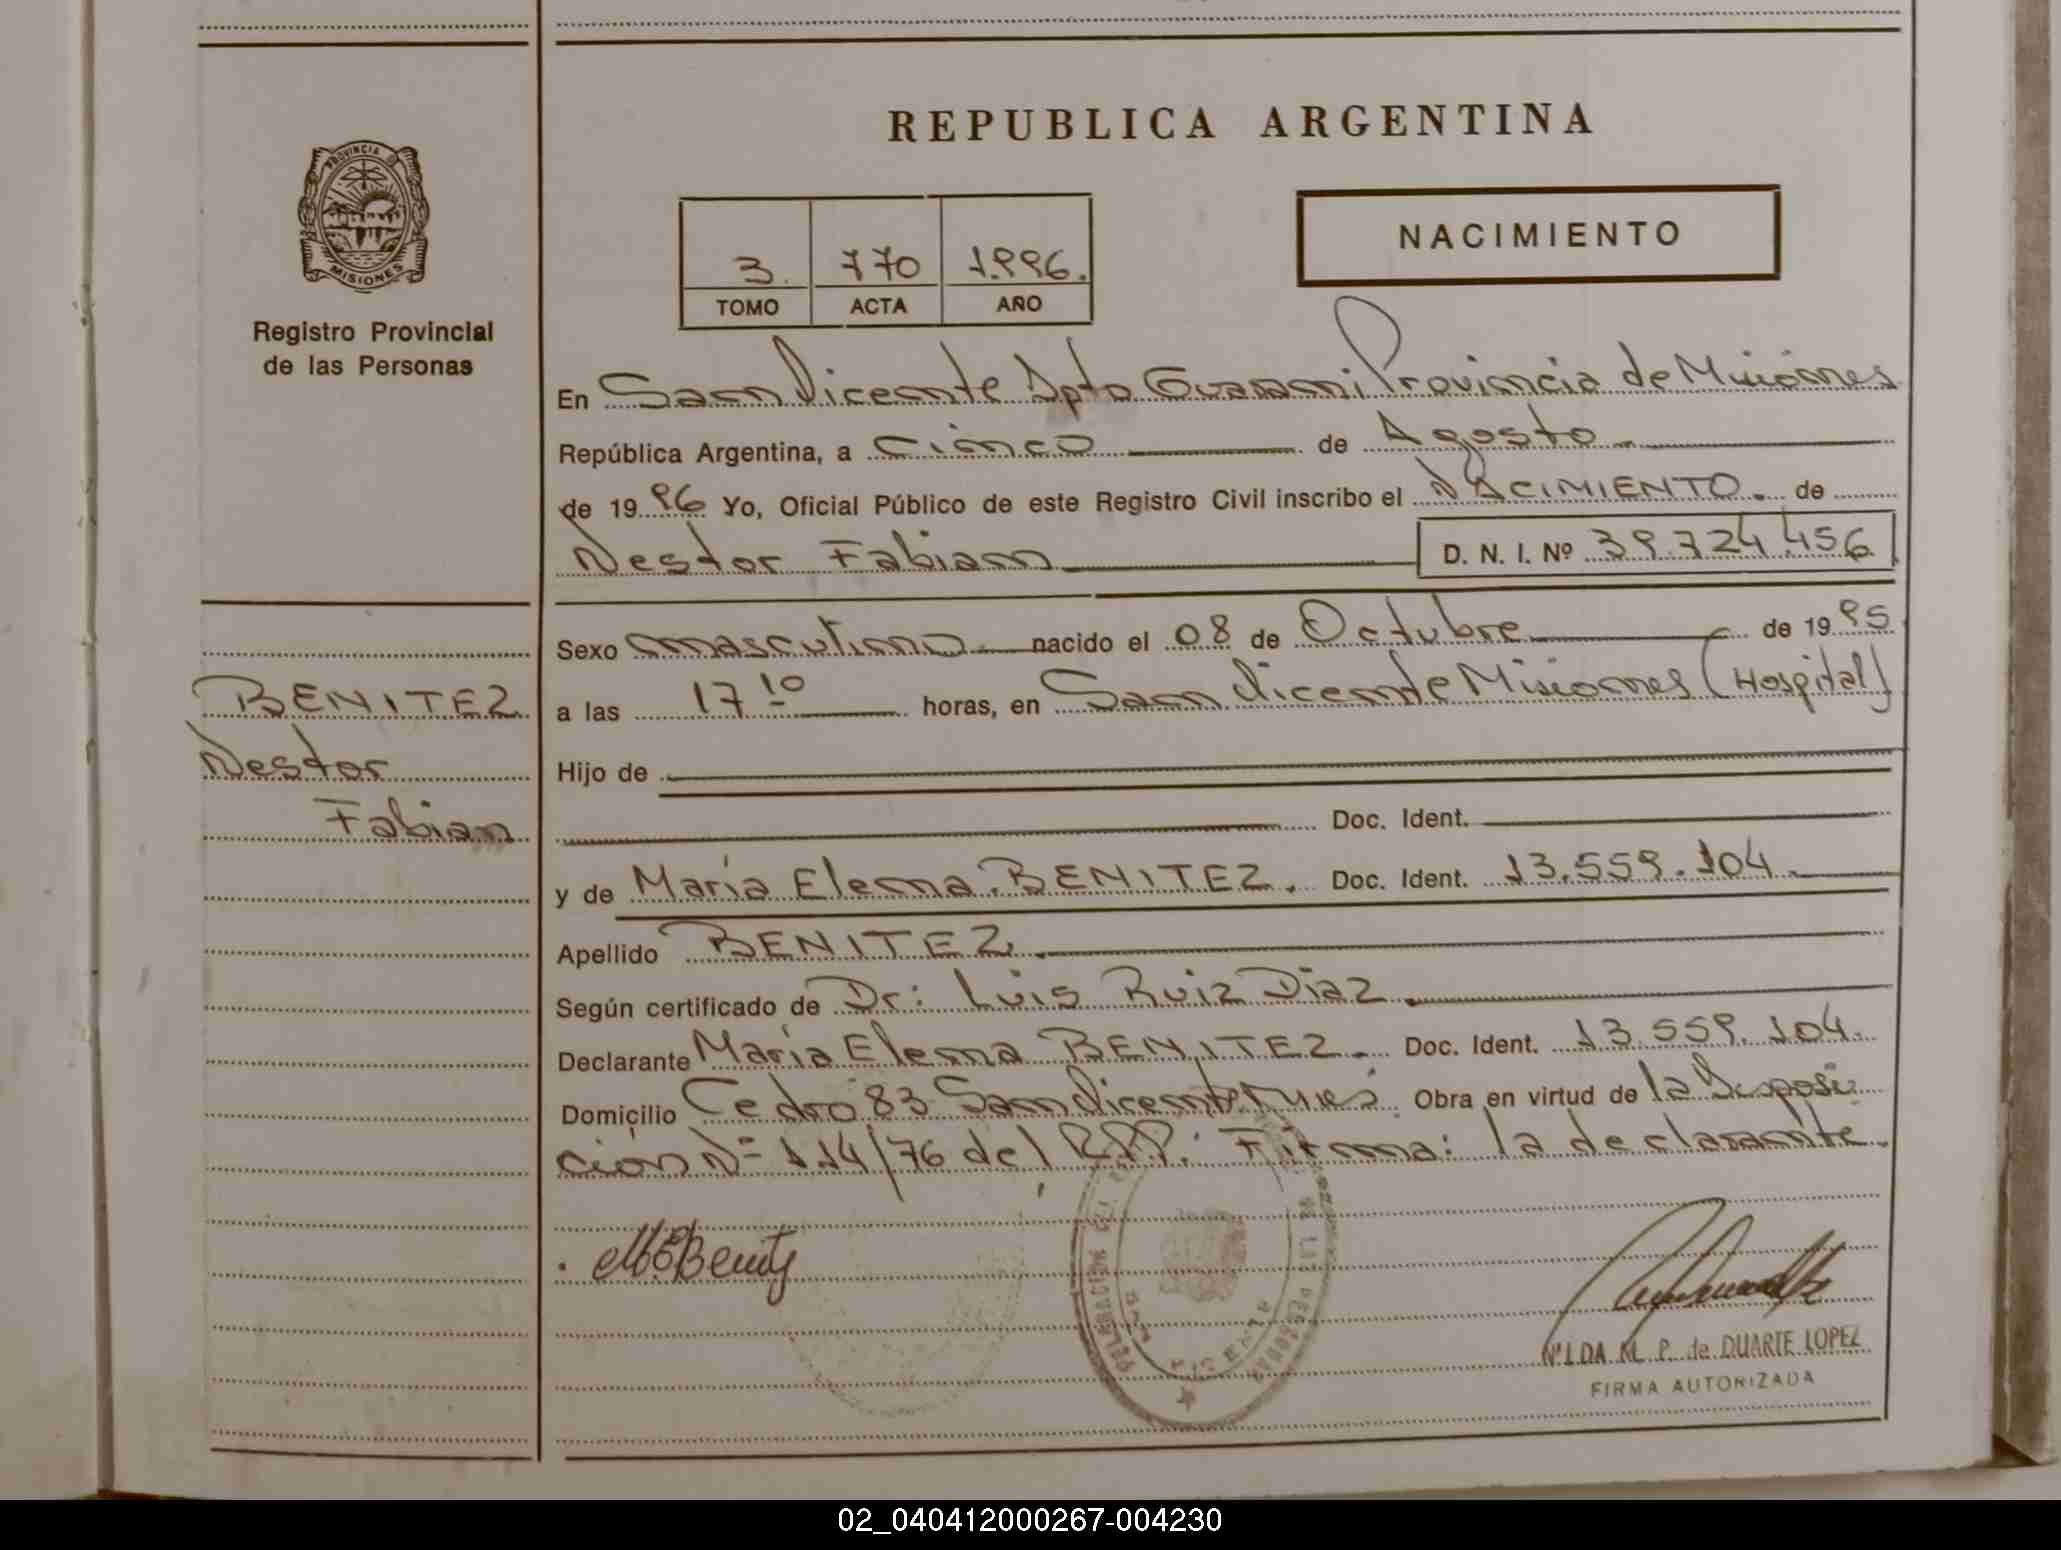 REPUBLICA ARGENTINA
PROVINCIA D
MISIONES
Registro Provincial
de las Personas
3. 770 1996.
TOMO ACTA AÑO
NACIMIENTO
En San Vicente Dpto Guarani Provincia de Misiones
República Argentina, a cinco de Agosto
de 1996 Yo, Oficial Público de este Registro Civil inscribo el NACIMIENTO. de
Nestor Fabian D. N. I. Nº 39.724.456
Sexo masculino nacido el 08 de Octubre de 1995
a las 17 10 horas, en San Vicente Misiones (Hospital)
Hijo de
Doc. Ident.
y de María Elena BENITEZ. Doc. Ident. 13.559.104.
Apellido BENITEZ.
Según certificado de Dr: Luis Ruiz Diaz.
Declarante María Elena BENITEZ. Doc. Ident. 13.559.104.
Domicilio Cedro 83 San Vicente Mnes. Obra en virtud de la Disposi
ción Nº 114/76 del R.P.P. Firma: la declarante.
BENITEZ
Nestor
Fabian
M.E.Benitez
DELEGACION
NILDA M. P. de DUARTE LOPEZ
FIRMA AUTORIZADA
02_040412000267-004230